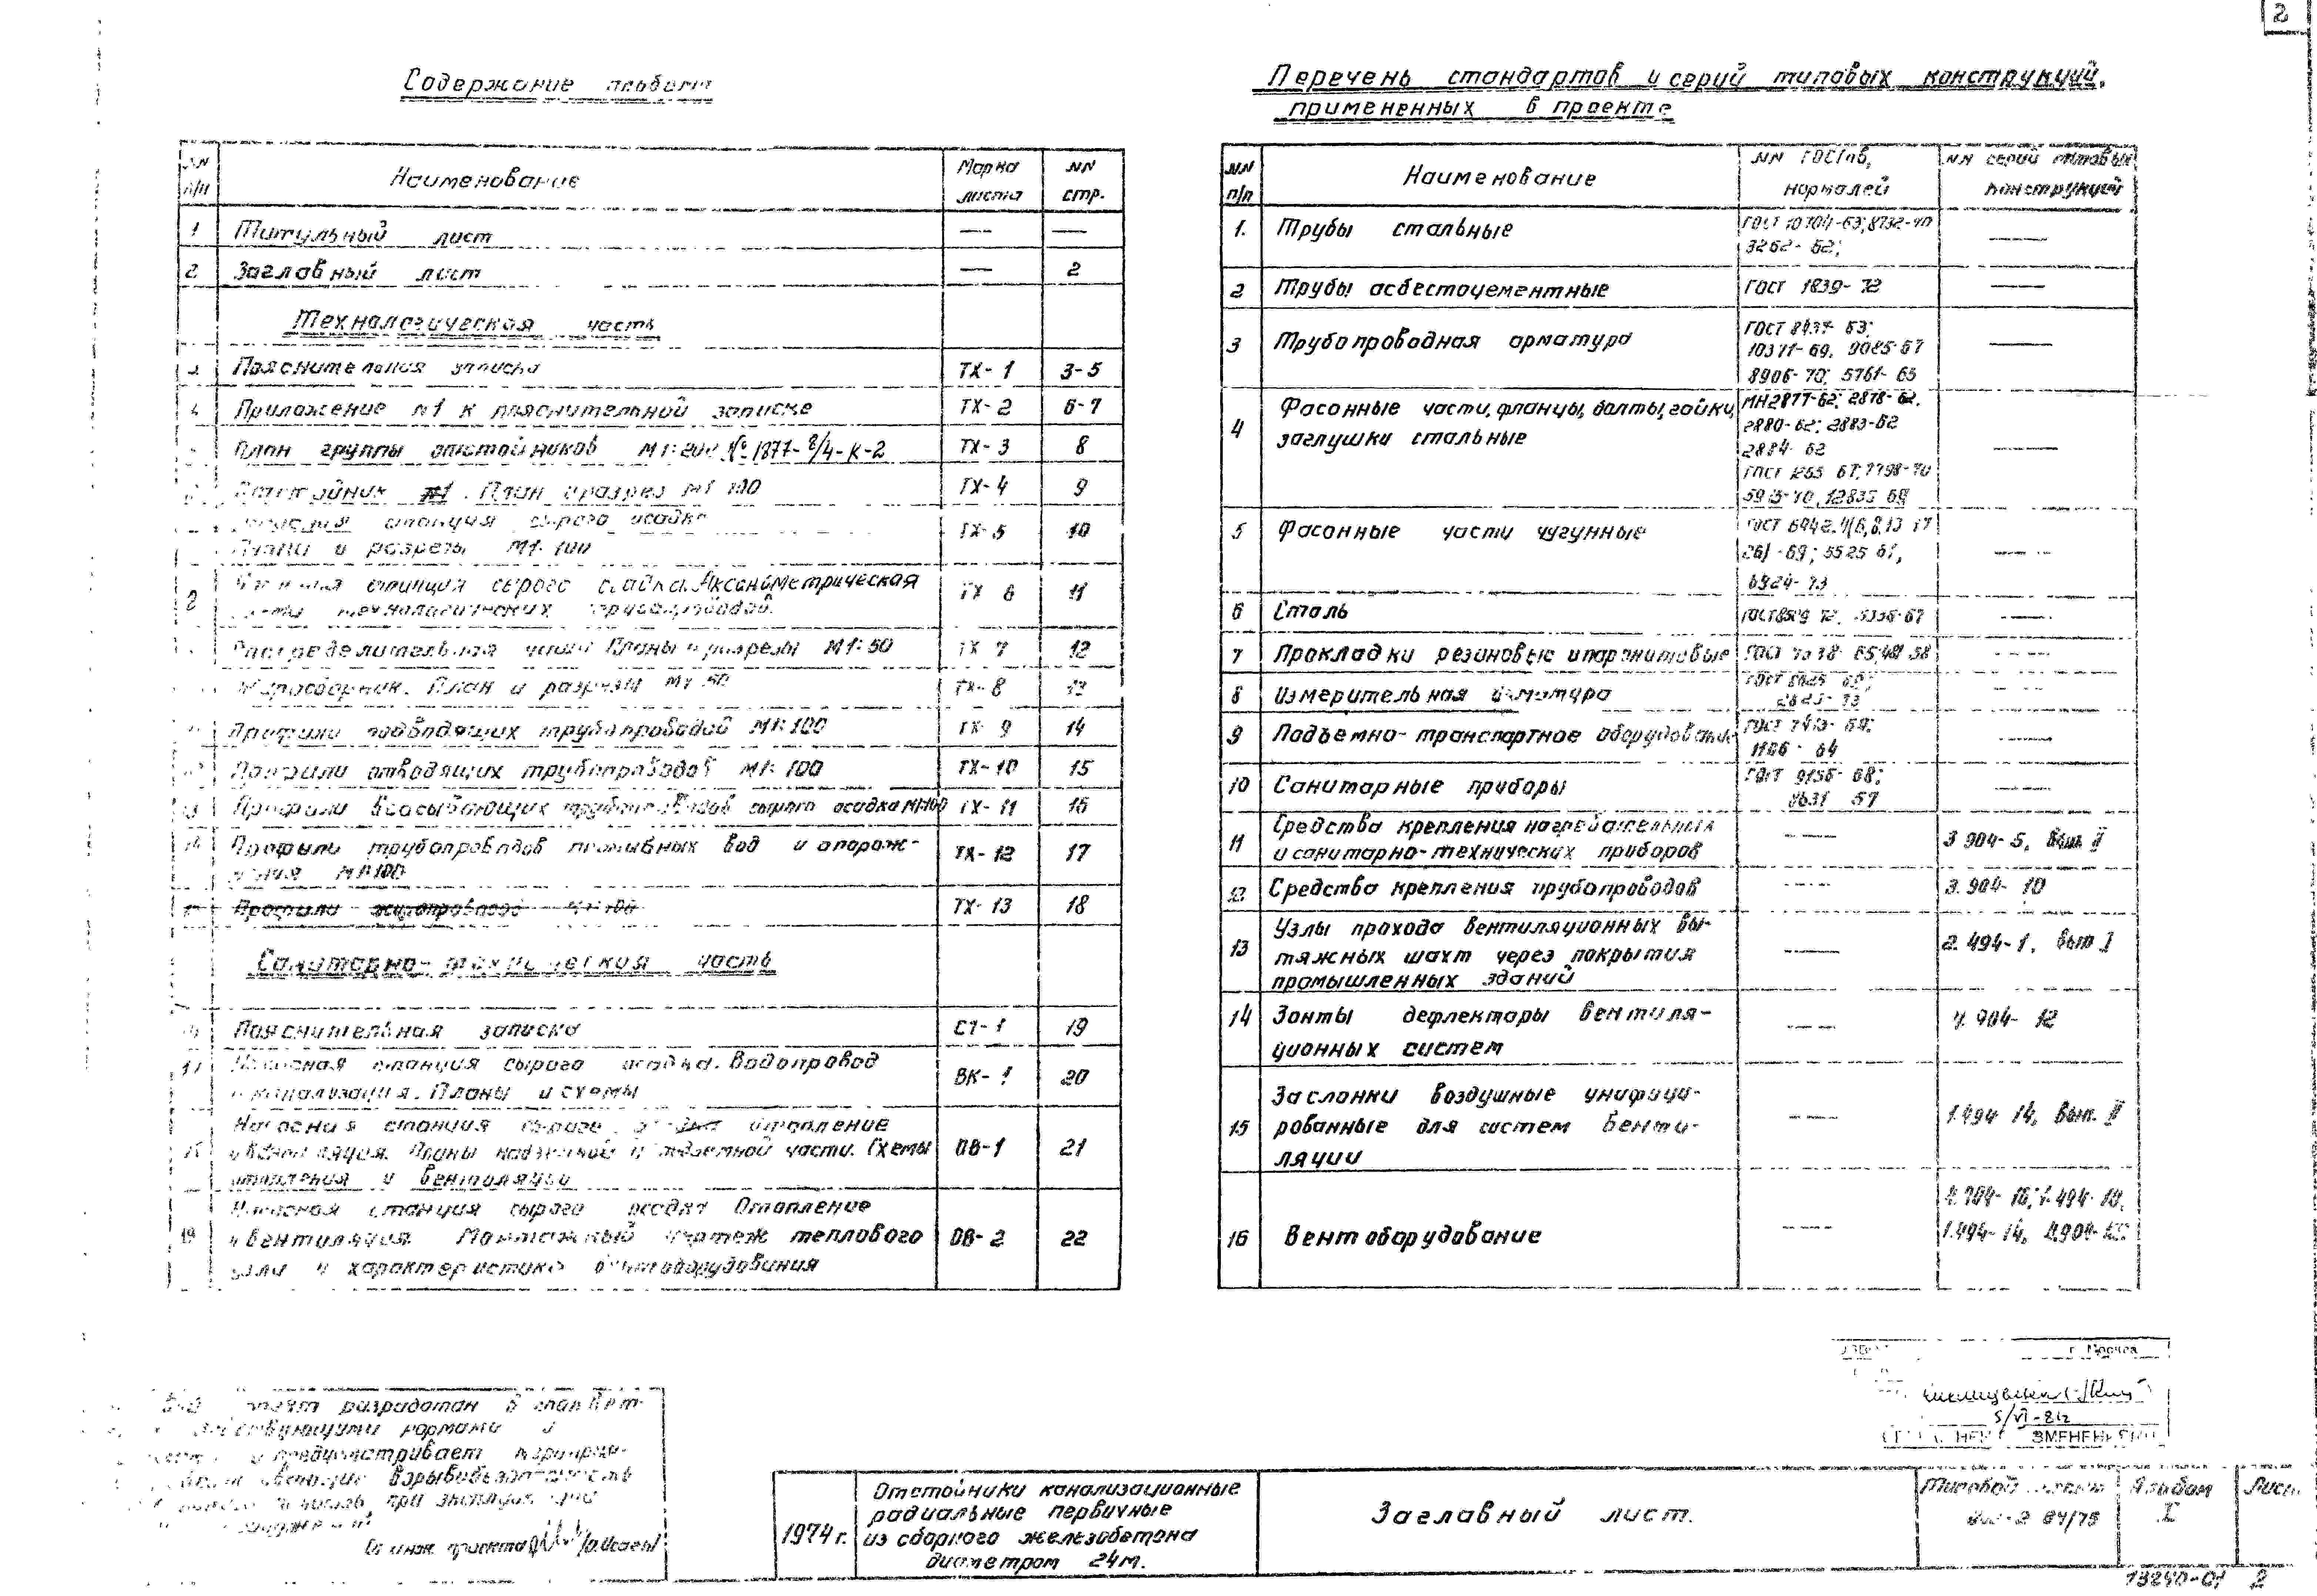 2
Содержание альбома
NN п/п Наименование Марка листа NN стр.
1 Титульный лист — —
2 Заглавный лист — 2
Технологическая часть
Пояснительная записка ТХ-1 3-5
4 Приложение №1 к пояснительной записке ТХ-2 6-7
План группы отстойников М1:200 № 1877-8/4-К-2 ТХ-3 8
Отстойник №1. План и разрез М1:100 ТХ-4 9
станция сырого осадка
Планы и разрезы М1:100 ТХ-5 10
8 станция сырого осадка. Аксонометрическая
схема технологических трубопроводов. ТХ-6 11
Распределительная чаша Планы и разрезы М1:50 ТХ-7 12
Жиросборник. План и разрезы М1:50 ТХ-8 13
Профили подводящих трубопроводов М1:100 ТХ-9 14
Профили отводящих трубопроводов М1:100 ТХ-10 15
13 Профили всасывающих трубопроводов сырого осадка М1:100 ТХ-11 16
14 Профили трубопроводов промывных вод и опорож-
нения М1:100 ТХ-12 17
Профили жиропроводов М1:100 ТХ-13 18
Санитарно-техническая часть
Пояснительная записка СТ-1 19
17 Насосная станция сырого осадка. Водопровод
и канализация. Планы и схемы ВК-1 20
Насосная станция сырого осадка Отопление
и вентиляция. Планы надземной и подземной части. Схемы
отопления и вентиляции ОВ-1 21
19 Насосная станция сырого осадка Отопление
и вентиляция Монтажный чертеж теплового
узла и характеристика вентоборудования ОВ-2 22
Перечень стандартов и серий типовых конструкций,
примененных в проекте
NN п/п Наименование NN ГОСТов, нормалей NN серий типовых конструкций
1. Трубы стальные ГОСТ 10704-63; 8732-70
3262-62; —
2 Трубы асбестоцементные ГОСТ 1839-72 —
3 Трубопроводная арматура ГОСТ 8437-63;
10371-69, 9085-67
8906-70; 5761-65 —
4 Фасонные части, фланцы, болты, гайки,
заглушки стальные МН2877-62; 2878-62,
2880-62; 2883-62
2884-62
ГОСТ 1255-67; 7798-70
5915-70, 12835-69 —
5 Фасонные части чугунные ГОСТ 6942
5525-61,
6924-73 —
6 Сталь ГОСТ 8509-72, 5336-67 —
7 Прокладки резиновые и паронитовые ГОСТ —
8 Измерительная арматура ГОСТ
2823-73 —
9 Подъемно-транспортное оборудование ГОСТ 7413-69;
1106-64 —
10 Санитарные приборы ГОСТ 9156-68;
8631-57 —
11 Средства крепления нагревательных
и санитарно-технических приборов — 3.904-5, Вып. II
12 Средства крепления трубопроводов — 3.904-10
13 Узлы прохода вентиляционных вы-
тяжных шахт через покрытия
промышленных зданий — 2.494-1, Вып. I
14 Зонты дефлекторы вентиля-
ционных систем — 4.904-12
15 Заслонки воздушные унифици-
рованные для систем венти-
ляции — 1.494-14, Вып. II
16 Вентоборудование — 1.494-10,
1.494-14,
проект разработан в соответ-
ствии с действующими нормами и
и предусматривает мероприя-
взрывобезопасность
при эксплуатации
Гл. инж. проекта
г. Москва
5/VI-81г
1974 г.
Отстойники канализационные
радиальные первичные
из сборного железобетона
диаметром 24м.
Заглавный лист.
Типовой проект
902-2 84/75
Альбом
I
Лист
13240-01 2